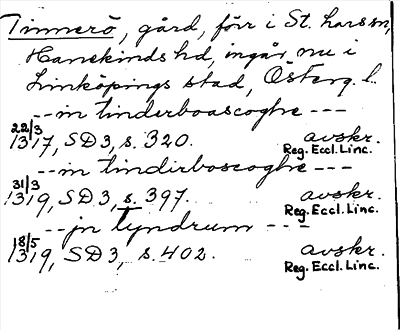 Tinnerö, gård, förr i St. Lars sn,
Hanekinds hd, ingår nu i
Linköpings stad, Österg. l.
--in tinderboascoghe ---
22/3 1317, SD 3, s. 320. avskr.
Reg. Eccl. Linc.
--in tindirboscoghe ---
31/3 1319, SD 3, s. 397. avskr.
Reg. Eccl. Linc.
--jn tyndrum ---
18/5 1319, SD 3, s. 402. avskr.
Reg. Eccl. Linc.